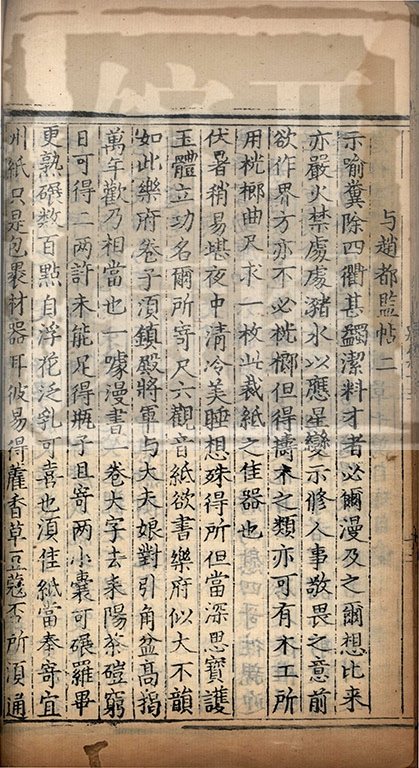 与趙都監帖二
示喻糞除四衢甚蠲潔料才者必爾漫及之爾想比來
亦嚴火禁處處豬水以應星變示修人事敬畏之意前
欲作界方亦不必桄榔但得擣木之類亦可有木工所
用桄榔曲尺求一枚此裁紙之佳器也
伏暑稍易堪夜中清冷美睡想殊得所但當深思寶護
玉體立功名爾所寄尺六觀音紙欲書樂府似大不韻
如此樂府卷子湏鎮殿將軍与大夫娘對引角盆髙揭
萬年歡乃相當也一噱漫書一卷大字去耒陽茶磑窮
日可得二两許未能足得瓶子且寄两小囊可碾羅畢
更熟碾數百點自浮花泛乳可喜也湏佳紙當奉寄宜
州紙只是包裹材器耳彼易得藿香草豆蔻否所湏通